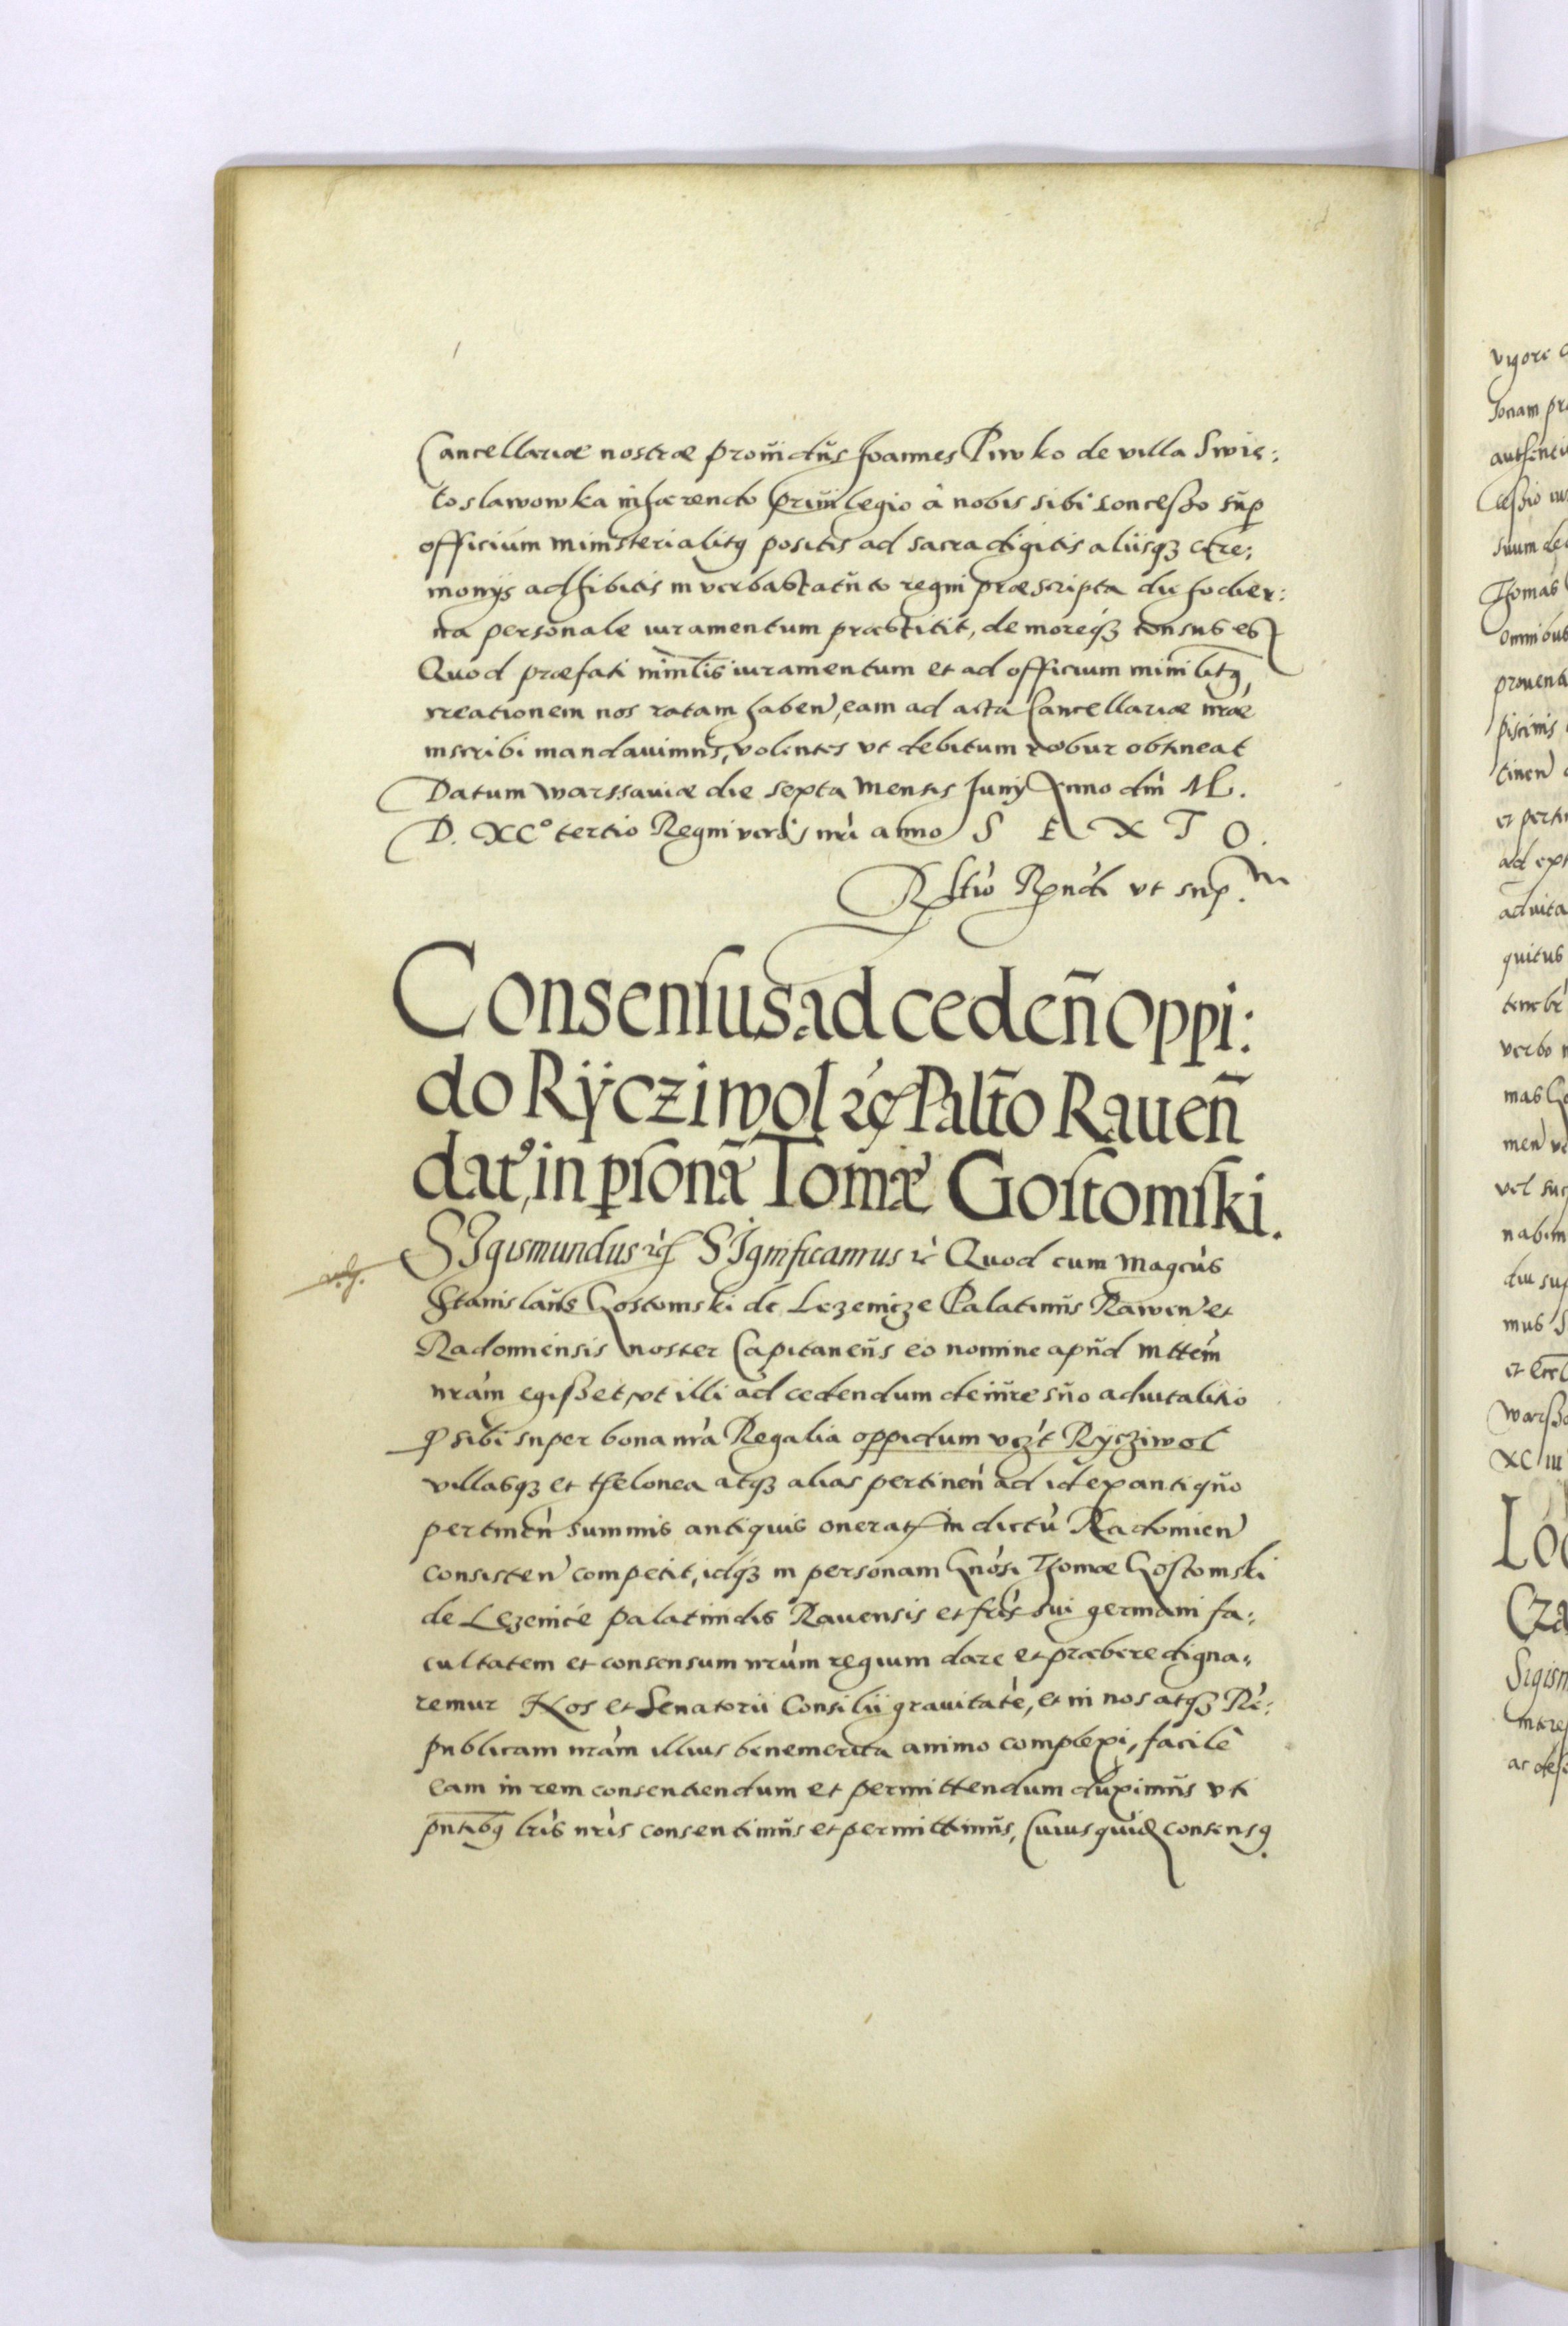 Cancellariæ nostræ prouidus Joannes Piwko de villa Swie:
toslawowka inhærendo priuilegio à nobis sibi concesso sup
officium ministerialitꝯ positis ad sacra digitis aliisqꝫ cere:
monijs adhibitis in verba statuto regni præscripta die hodier:
na personale iuramentum præstitit, de moreqꝫ tonsus est
Quod præfati minlis iuramentum et ad officium minilitꝯ
creationem nos ratam haben, eam ad acta Cancellariæ nræ
inscribi mandauimus, volentes vt debitum robur obtineat
Datum Warssauiæ die sexta Mensis Junij Anno dni M.
D. XC° tertio Regni vero nri anno S E X T O.
vt sup.
Consensus ad ceden Oppi:
do Rÿcziwol ꝛc Palto Rauen
dat, in psonã Tomæ Gostomski.
SIgismundus ꝛc SIgnificamus ꝛc Quod cum Magcus
Stanislaus Gostomski de Lezenicze Palatinus Rawen et
Radomiensis noster Capitaneus eo nomine apud Mttem
nram egisset, vt illi ad cedendum de iure suo aduitalitio
qd sibi super bona nra Regalia oppidum vczt Rÿcziwol
villasqꝫ et thelonea atqꝫ alias pertinen ad id ex antiquo
pertinen summis antiquis onerat in dictu Radomien
consisten competit, idqꝫ in personam Gnosi Thomæ Gostomski
de Lezenice palatinidis Rauensis et fris sui germani fa:
cultatem et consensum nrum regium dare et præbere digna:
remur Nos et Senatorii Consilii grauitate, et in nos atqꝫ Re:
publicam nram illius benemerita animo complexi, facile
Eam in rem consentiendum et permittendum duximus vti
pntibꝯ lris nris consentimus et permittimus, Cuius quidē consensꝯ